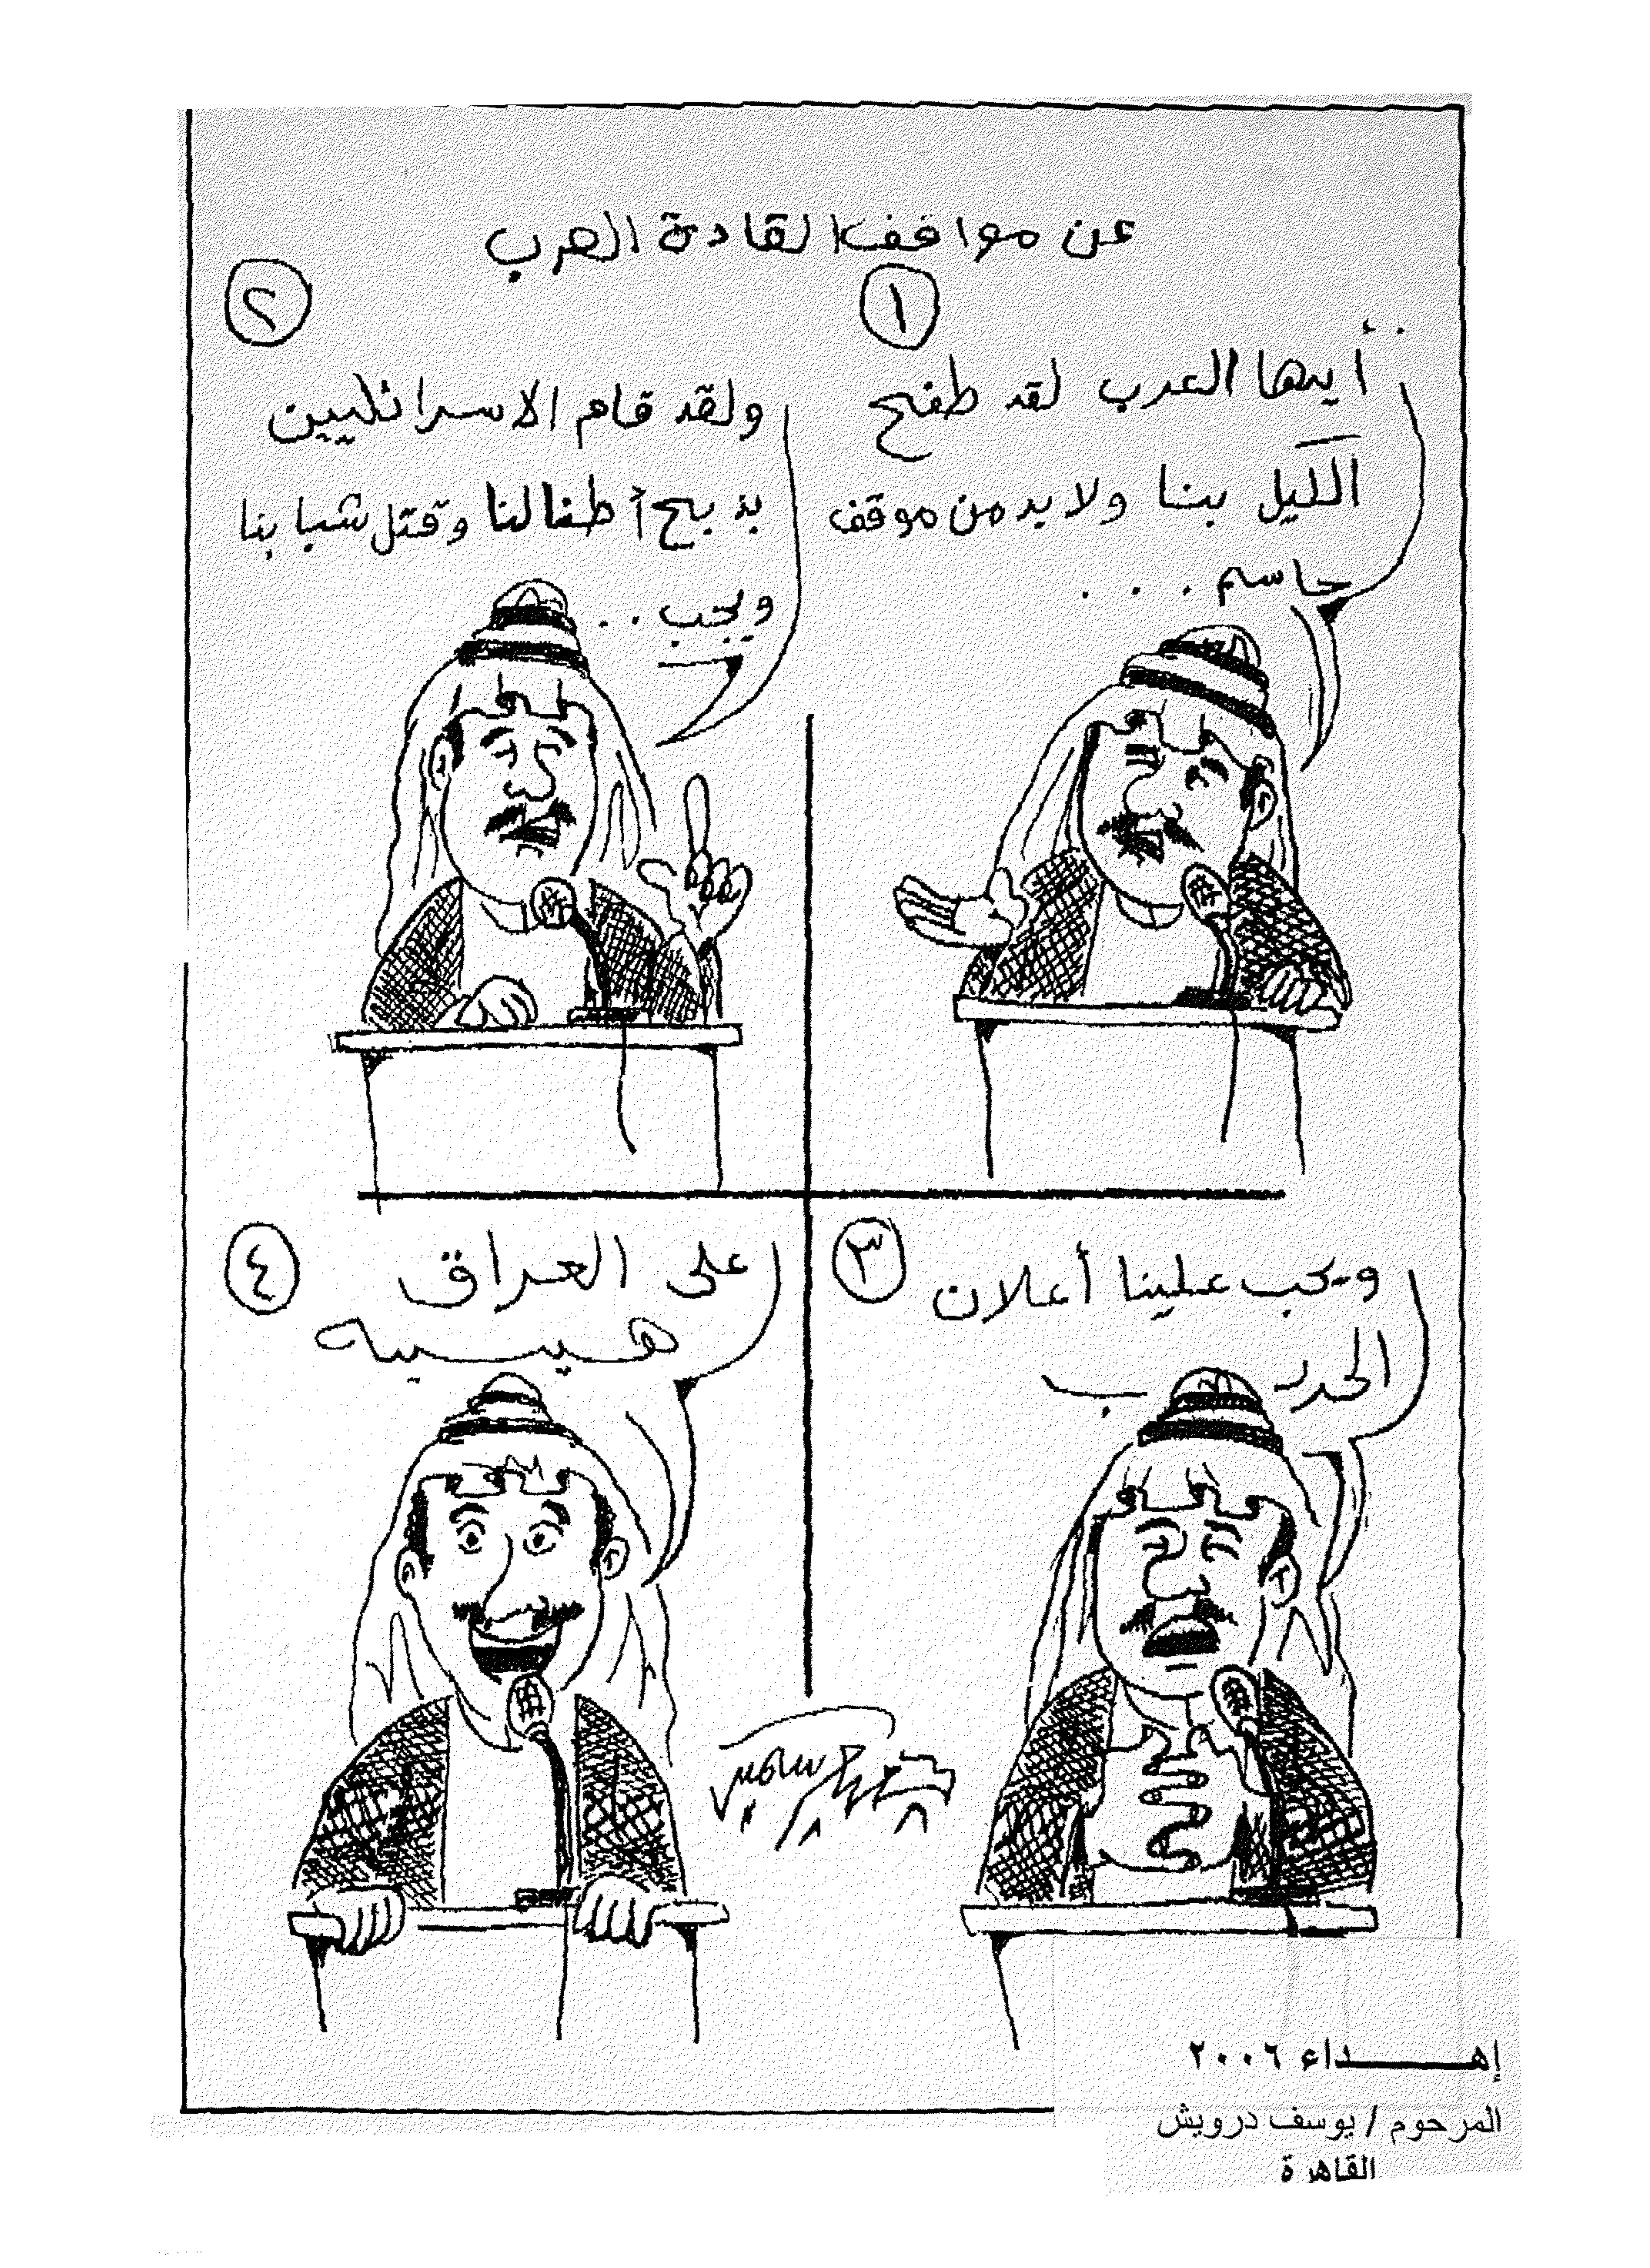 عن مواقف القادة العرب
١
أيها العرب لقد طفح
الكيل بنا ولا بد من موقف
حاسم . . .
٢
ولقد قام الاسرائليين
بذبح أطفالنا وقتل شبابنا
ويجب . .
٣
ويجب علينا أعلان
الحرب
٤
على العراق
هيييه
سمير
إهداء ٢٠٠٦
المرحوم / يوسف درويش
القاهرة